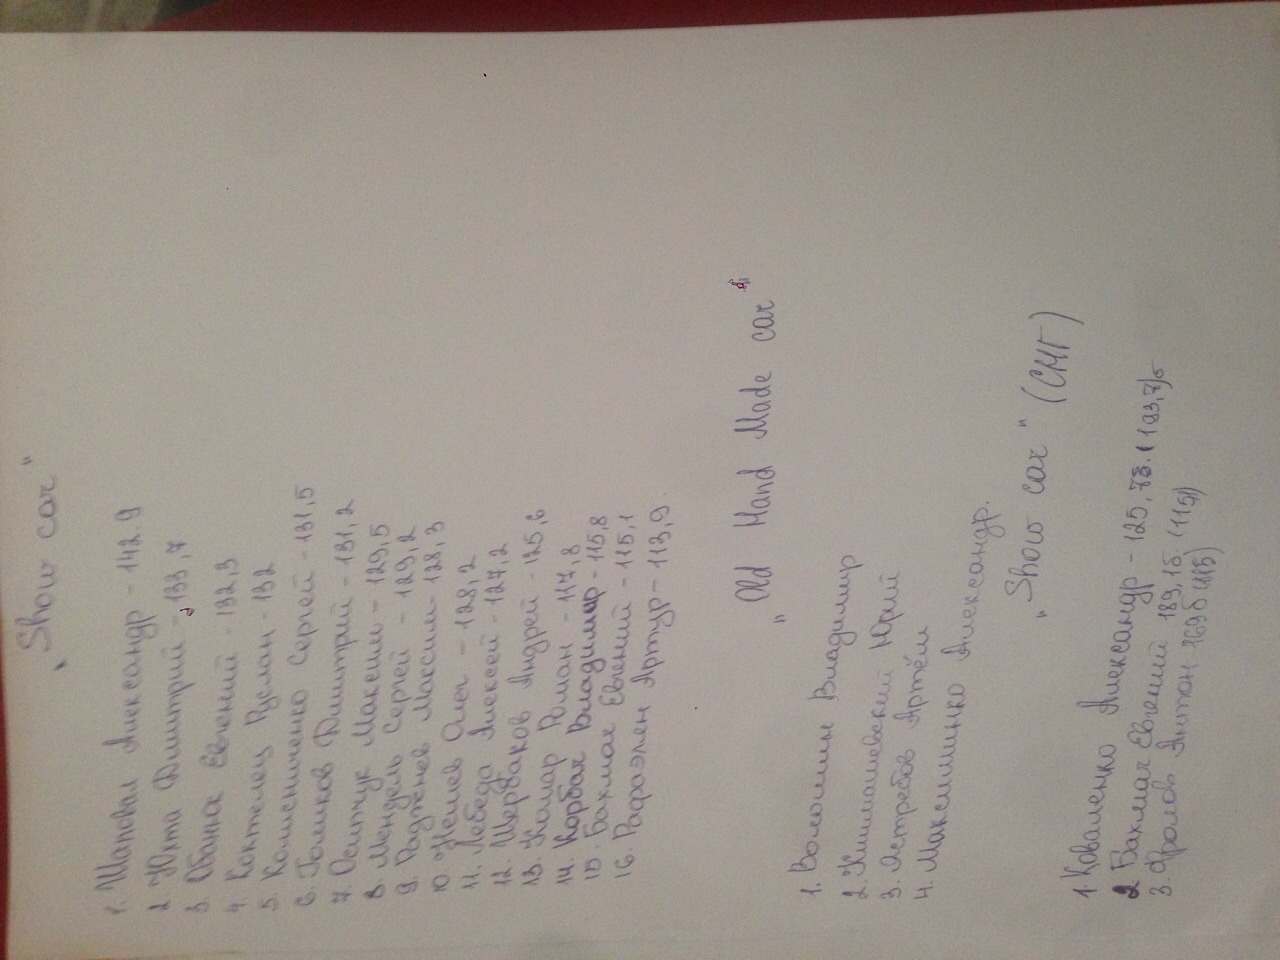 „Show car"
1. Шаповал Александр - 142.9
2. Юхта Дмитрий - 133,7
3. Обанюк Евгений - 132,3
4. Коктелец Руслан - 132
5. Колисниченко Сергей - 131,5
6. Голиков Дмитрий - 131,2
7. Осипчук Максим - 129,5
8. Мендель Сергей - 129,2
9. Максим - 128,3
10. Олег - 128,2
11. Лебеда Алексей - 127,2
12. Щербаков Андрей - 125,6
13. Комар Роман - 117,8
14. Корбач Владимир - 115,8
15. Бахмач Евгений - 115,1
16. Рафаэлен Артур - 113,9
„Old Hand Made car"
1. Волошин Владимир
2. Климашевский Юрий
3. Ястребов Артём
4. Максишинко Александр.
„Show car" (СНГ)
1. Коваленко Александр - 125,73. (123,7)б
2 Бахмач Евгений 189,1б. (115,1)
3. Фролов Антон 169б (115)